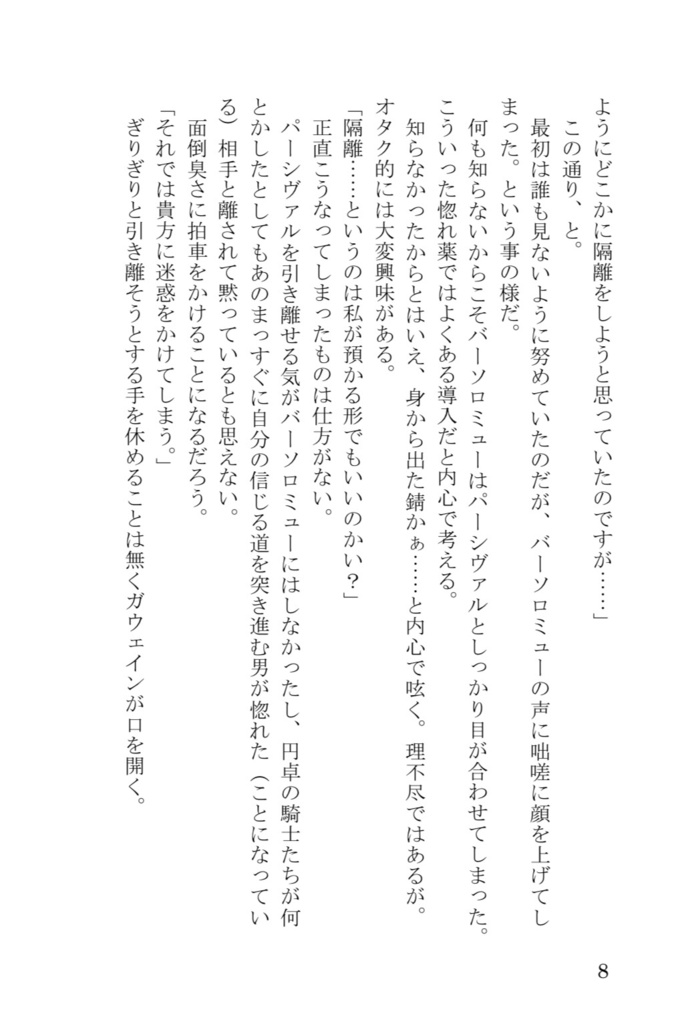 ようにどこかに隔離をしようと思っていたのですが……」
この通り、と。
最初は誰も見ないように努めていたのだが、バーソロミューの声に咄嗟に顔を上げてし
まった。という事の様だ。
何も知らないからこそバーソロミューはパーシヴァルとしっかり目が合わせてしまった。
こういった惚れ薬ではよくある導入だと内心で考える。
知らなかったからとはいえ、身から出た錆かぁ……と内心で呟く。理不尽ではあるが。
オタク的には大変興味がある。
「隔離……というのは私が預かる形でもいいのかい？」
正直こうなってしまったものは仕方がない。
パーシヴァルを引き離せる気がバーソロミューにはしなかったし、円卓の騎士たちが何
とかしたとしてもあのまっすぐに自分の信じる道を突き進む男が惚れた（ことになってい
る）相手と離されて黙っているとも思えない。
面倒臭さに拍車をかけることになるだろう。
「それでは貴方に迷惑をかけてしまう。」
ぎりぎりと引き離そうとする手を休めることは無くガウェインが口を開く。
8